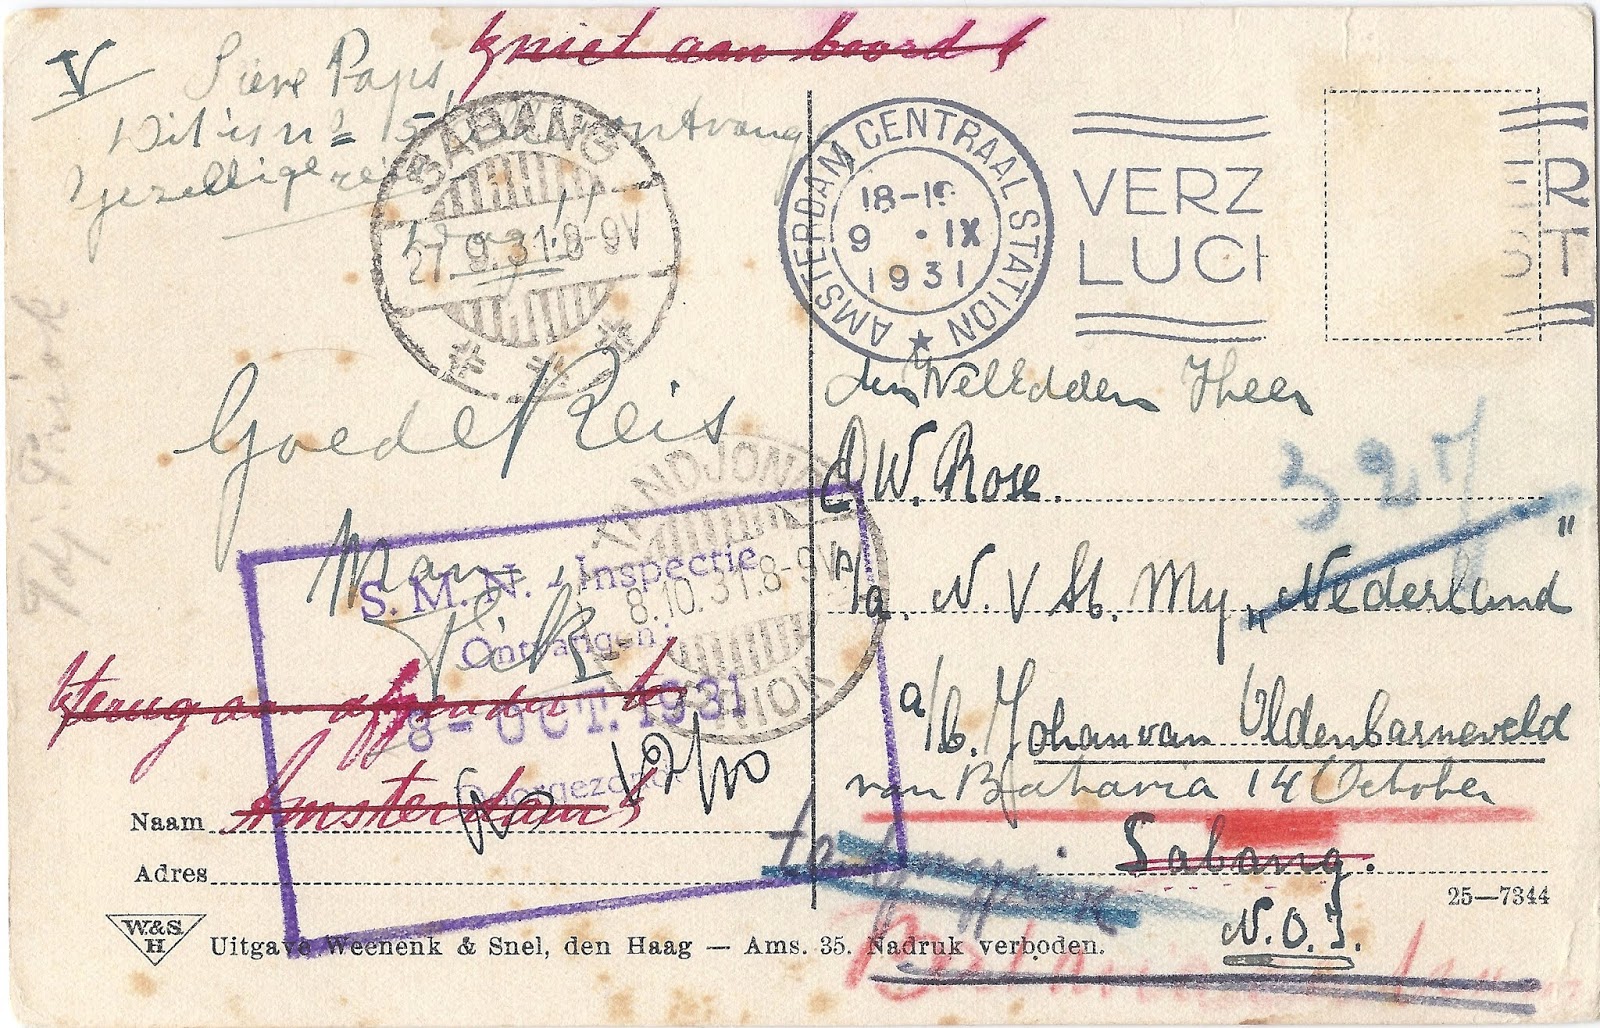 V
niet aan boord
Lieve Paps,
Dit is n° 15
gezellige
SABANG
27.9.31.8-9V
AMSTERDAM CENTRAAL STATION
18-19
9 · IX
1931
VERZ
LUCH
R
ST
Goede Reis
Man
Tdj. Priok
TANDJONG PRIOK
8.10.31.8-9V
S. M. N. - Inspectie
Ontvangen:
8 - OCT. 1931
Doorgezonden
12/10
terug aan afzender te
Amsterdam
den WelEdelen Heer
W. Rose.
327
p/a. N. V. St. My „Nederland"
a/b. Johan van Oldenbarneveld
van Batavia 14 October
Sabang.
N.O.I.
Naam
Adres
25—7344
W.&S.
H
Uitgave Weenenk & Snel, den Haag — Ams. 35. Nadruk verboden.